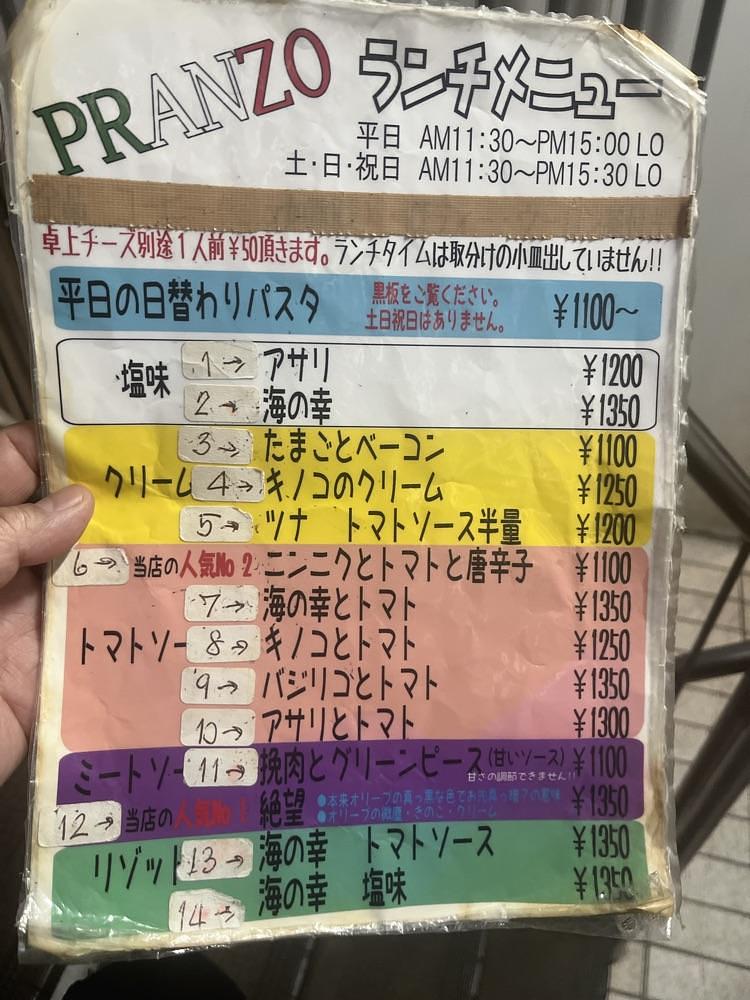 PRANZO ランチメニュー
平日 AM11:30～PM15:00 LO
土・日・祝日 AM11:30～PM15:30 LO
卓上チーズ別途1人前¥50頂きます。ランチタイムは取分けの小皿出していません!!
平日の日替わりパスタ 黒板をご覧ください。 ¥1100～
土日祝日はありません。
塩味 1→ アサリ ¥1200
2→ 海の幸 ¥1350
3→ たまごとベーコン ¥1100
クリーム 4→ キノコのクリーム ¥1250
5→ ツナ トマトソース半量 ¥1200
6→ 当店の人気No 2 ニンニクとトマトと唐辛子 ¥1100
7→ 海の幸とトマト ¥1350
トマトソー 8→ キノコとトマト ¥1250
9→ バジリコとトマト ¥1350
10→ アサリとトマト ¥1300
ミートソー 11→ 挽肉とグリーンピース(甘いソース) ¥1100
甘さの調節できません!!
12→ 当店の人気No 1 絶望 ●本来オリーブの真っ黒な色でお先真っ暗?の意味 ¥1350
●オリーブの微塵・きのこ・クリーム
リゾット 13→ 海の幸 トマトソース ¥1350
14→ 海の幸 塩味 ¥1350